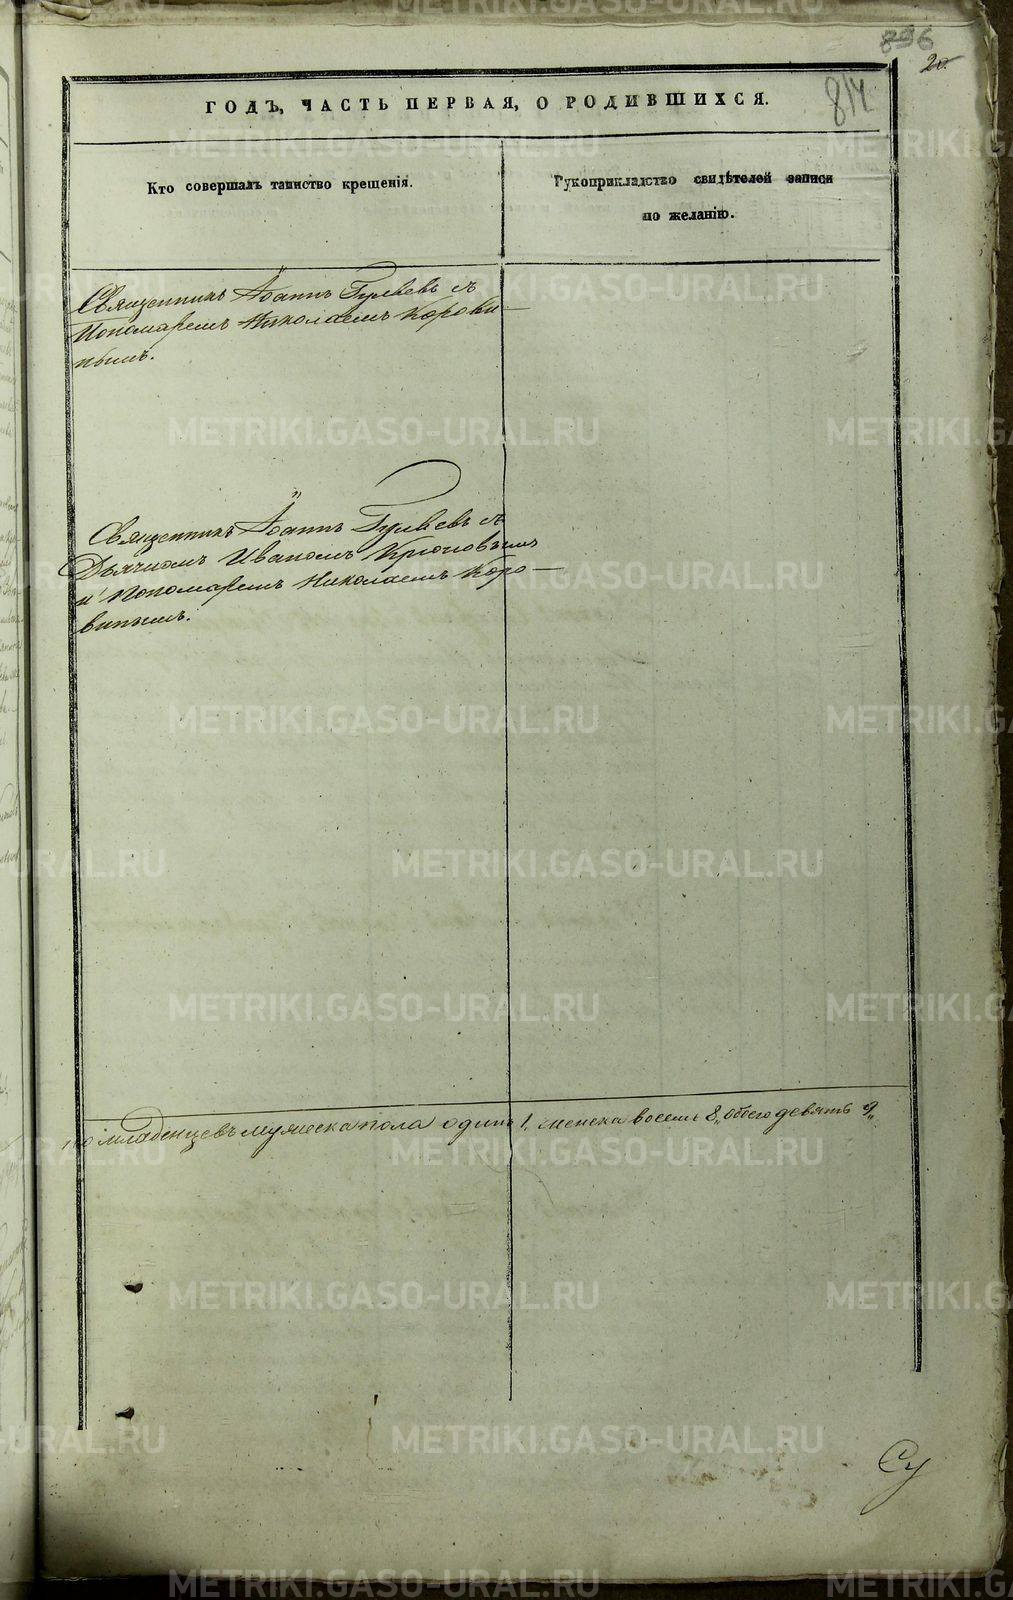 896
20.
814
ГОДЪ, ЧАСТЬ ПЕРВАЯ, О РОДИВШИХСЯ.
Кто совершалъ таинство крещенія.
Рукоприкладство свидѣтелей записи
по желанію.
Священникъ Іоаннъ Гуляевъ съ
Пономаремъ Николаемъ Корови-
нымъ.
Священникъ Іоаннъ Гуляевъ съ
Дьячкомъ Иваномъ Крюковымъ
и Пономаремъ Николаемъ Коро-
винымъ.
младенцевъ мужеска пола одинъ 1, женска восемь 8, обоего девять 9,,
METRIKI.GASO-URAL.RU